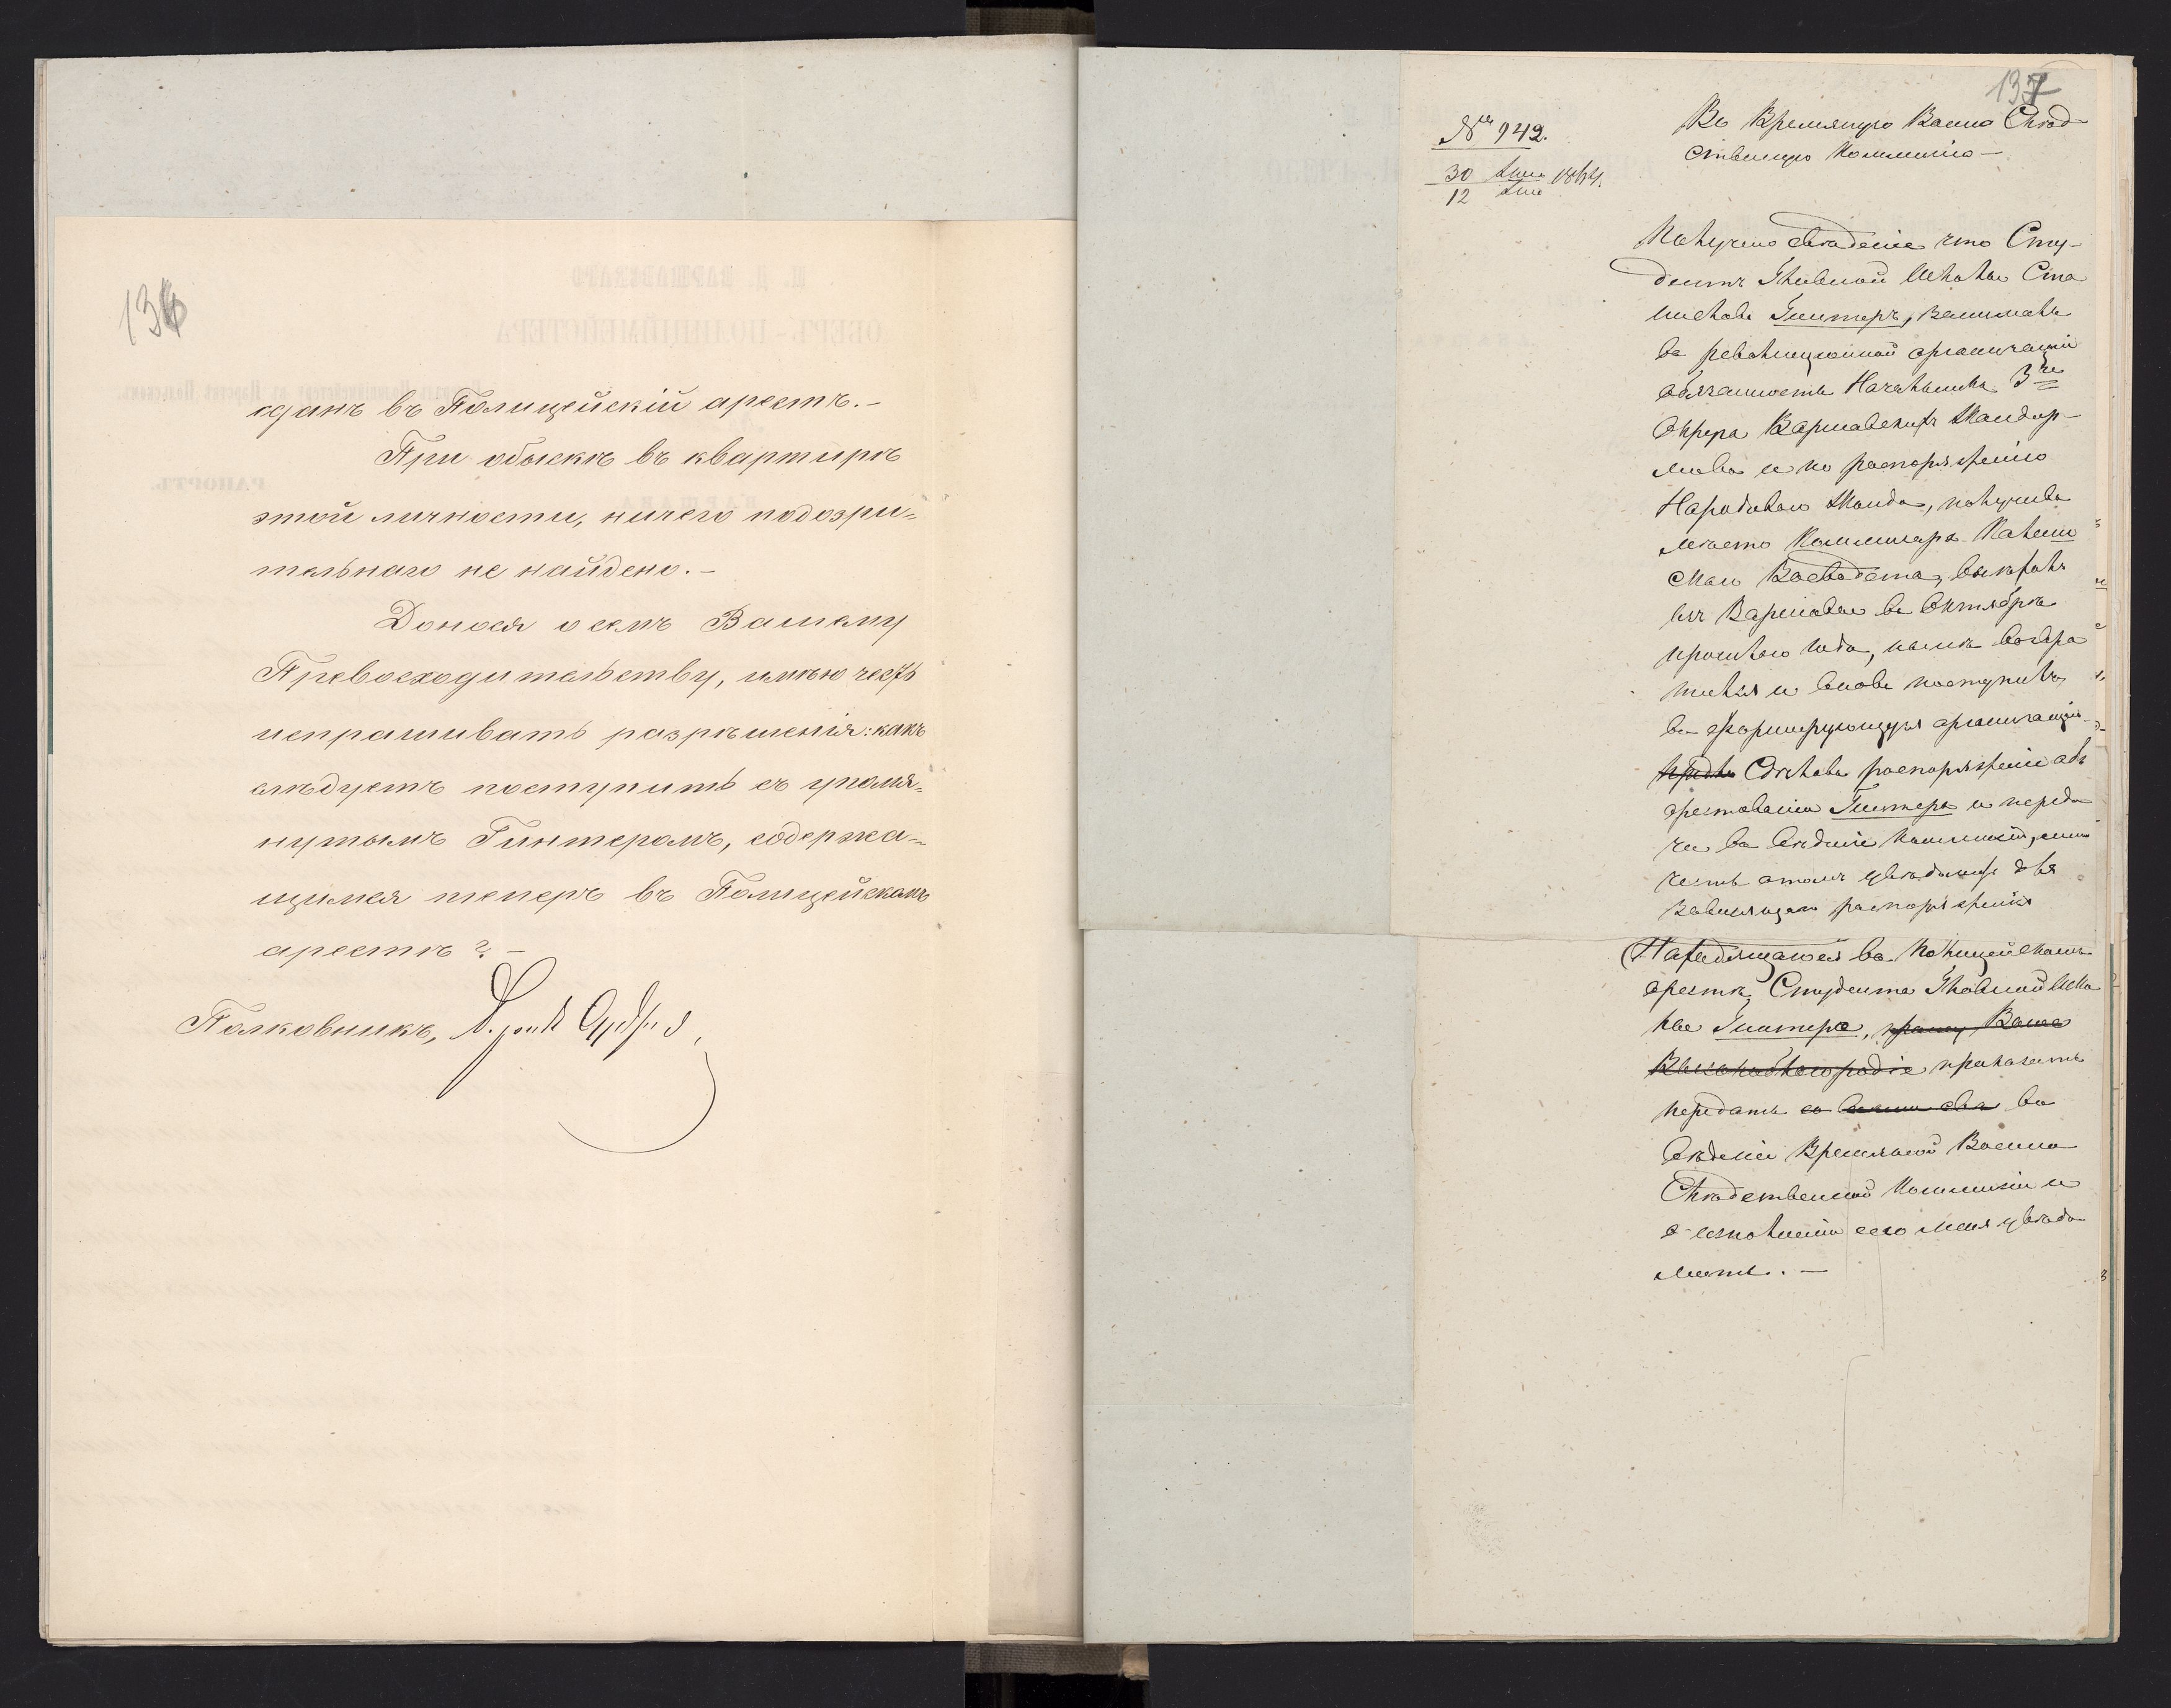 136
сданъ въ Полицейскій арестъ.-
При обыскѣ въ квартирѣ
этой личности, ничего подозри=
тельнаго не найдено.-
Донося о семъ Вашему
Превосходительству, имѣю честь
испрашивать разрѣшенія: какъ
слѣдуетъ поступить съ упомя=
нутымъ Гинтеромъ, содержа=
щимся теперь въ Полицейскомъ
арестѣ?-
Полковникъ,
137
№ 942.
30
12 1864.
Во Времяную Военно Слѣд-
ственную Коммисію-
Получено свѣдѣніе что Сту-
дентъ Главной Школы Ста
ниславъ Гинтеръ, занималъ
въ революціонной организаціи
обязанность Начальника 3го
Округа Варшавскихъ Жандар-
мовъ и по распоряженію
Народоваго Жонда, получивъ
мѣсто Коммисара Калиш
скаго Воеводства, выѣхалъ
изъ Варшавы въ Октябрѣ
прошлаго года, нынѣ возвра
тился и вновь поступилъ
въ формирующуюся организацію.
Сдѣлавъ распоряженіе объ
арестованіи Гинтера и переда
чи въ вѣденіе Коммисіи, имѣю
честь о томъ увѣдомить для
зависящаго распоряженія
Находящагося въ Полицейскомъ
арестѣ, Студента Главной Шко
лы Гинтера, прошу Ваше
Высокоблагородіе приказать
передать со въ
вѣденіе Времяной Военно
Слѣдственной Коммисіи и
о исполненіи сего меня увѣдо
мить.-